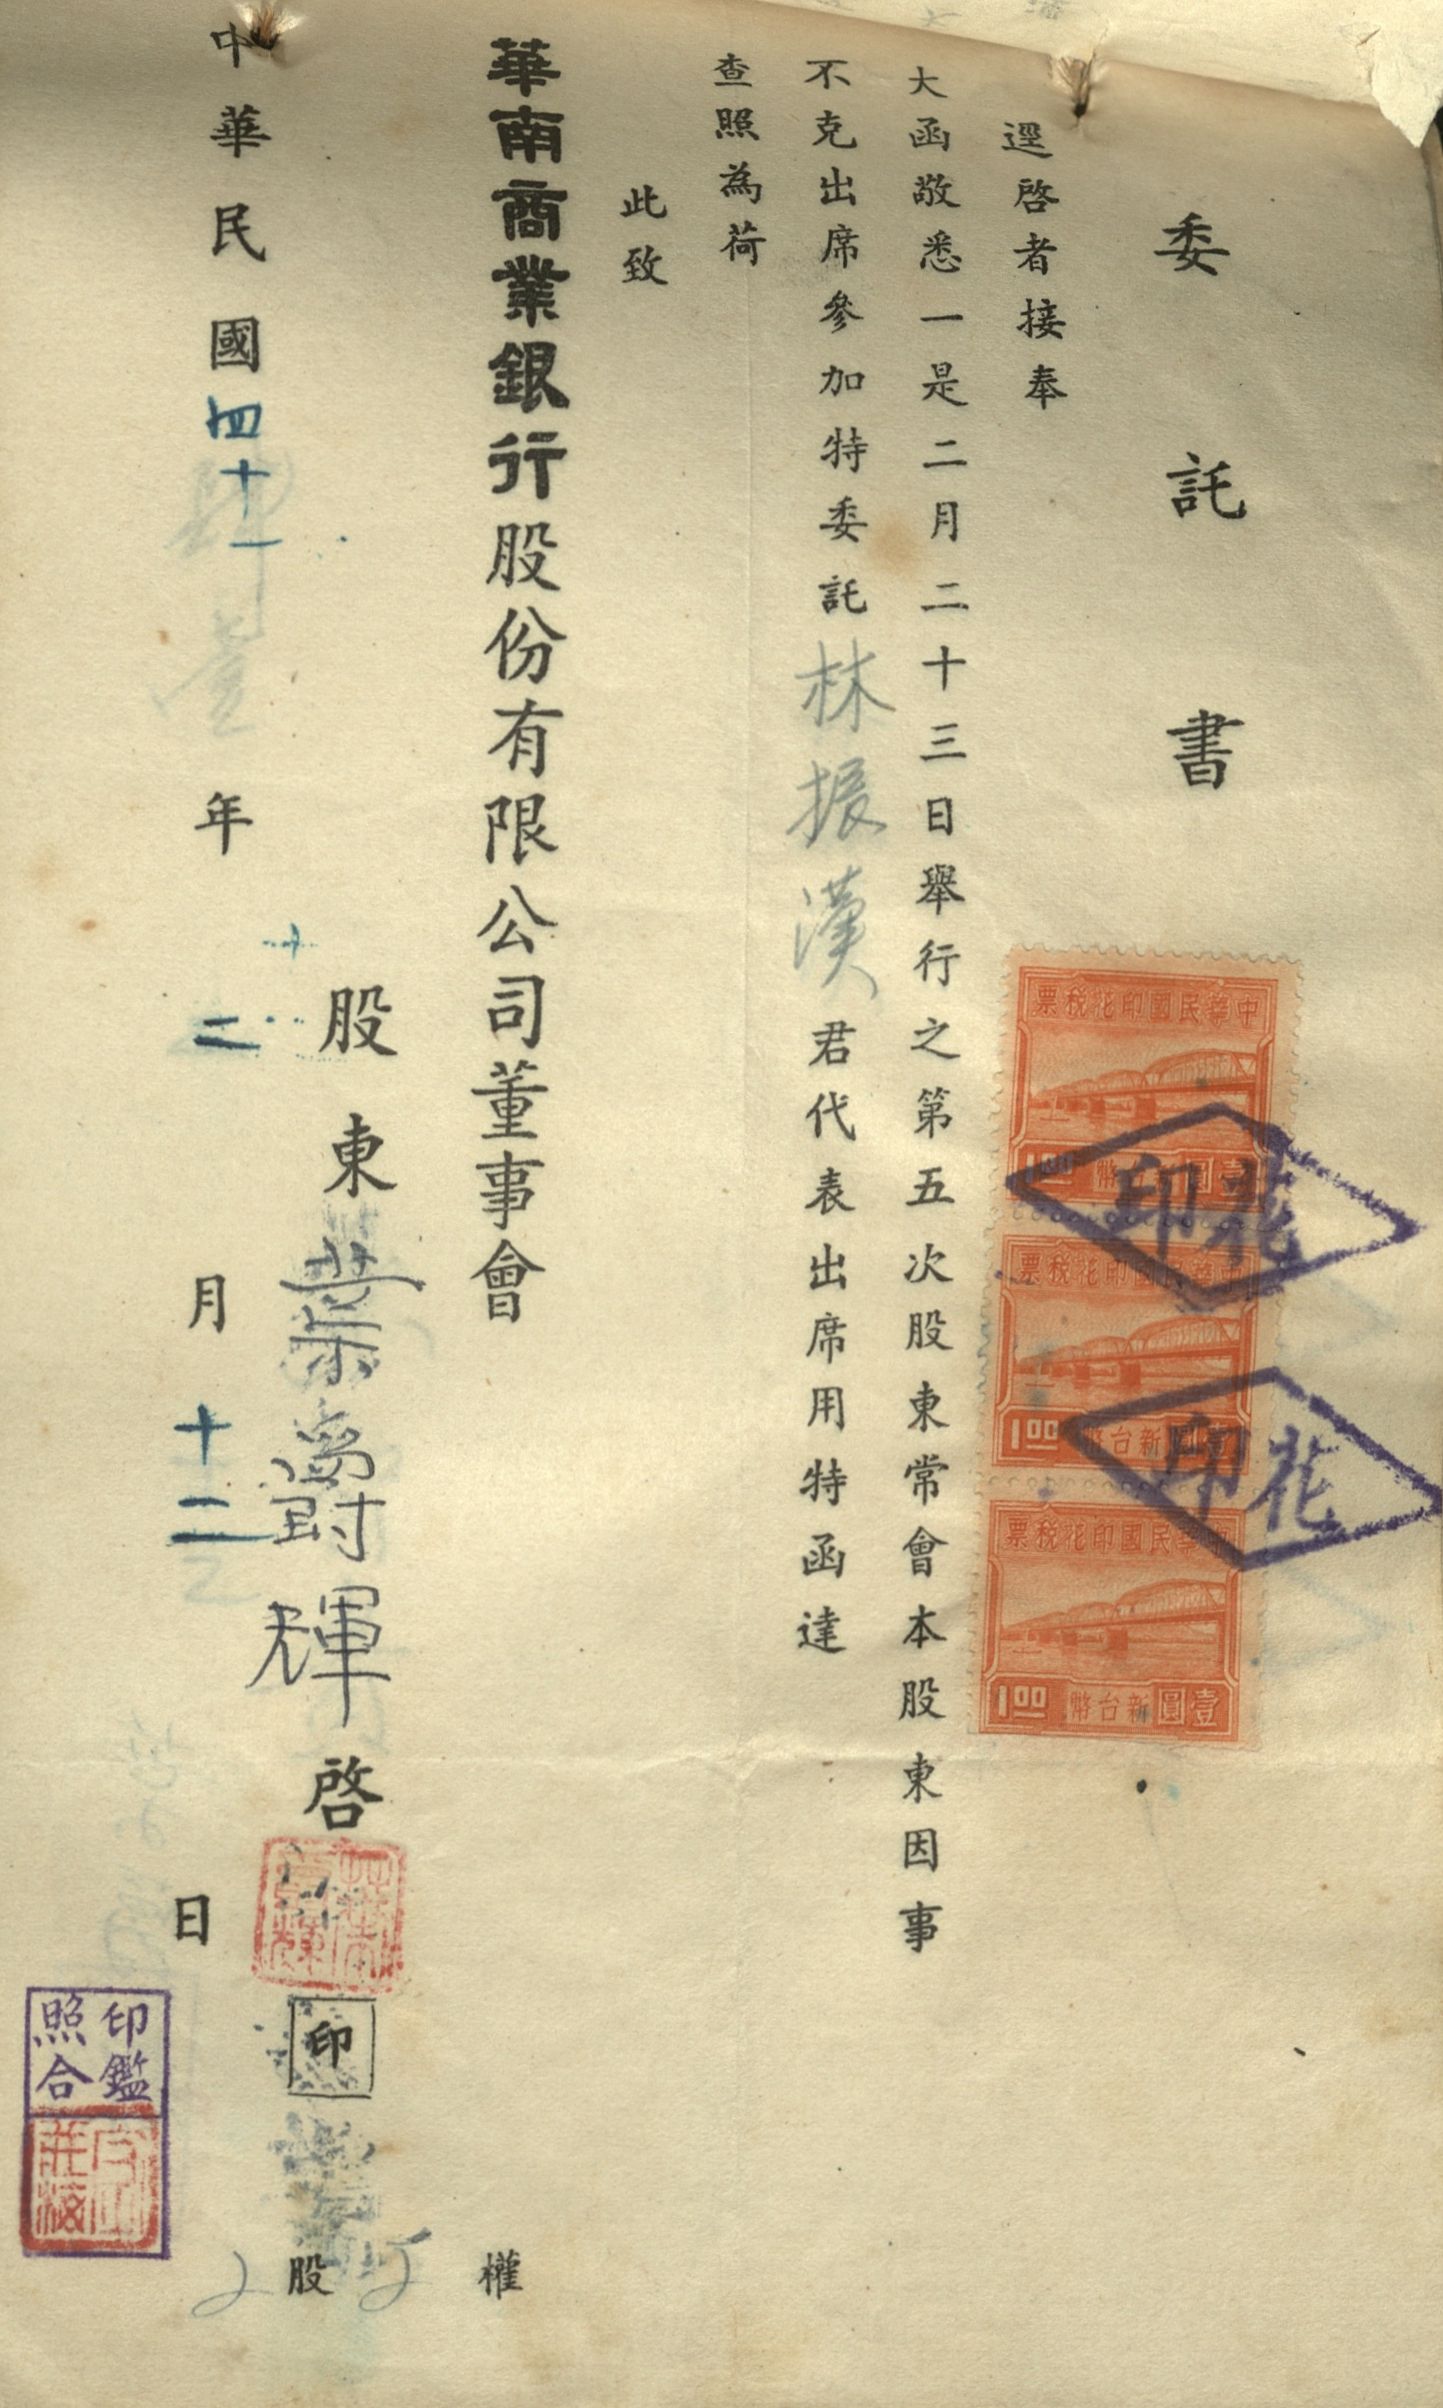 委託書
逕啓者接奉
大函敬悉一是二月二十三日舉行之第五次股東常會本股東因事
不克出席參加特委託林振漢君代表出席用特函達
查照為荷
此致
華南商業銀行股份有限公司董事會
股東葉爵輝啓
印
股
權
中華民國四十一年二月十二日
中華民國印花稅票
1.00
中華民國印花稅票
1.00 壹圓新台幣
中華民國印花稅票
1.00 壹圓新台幣
印花
印花
印鑑
照合